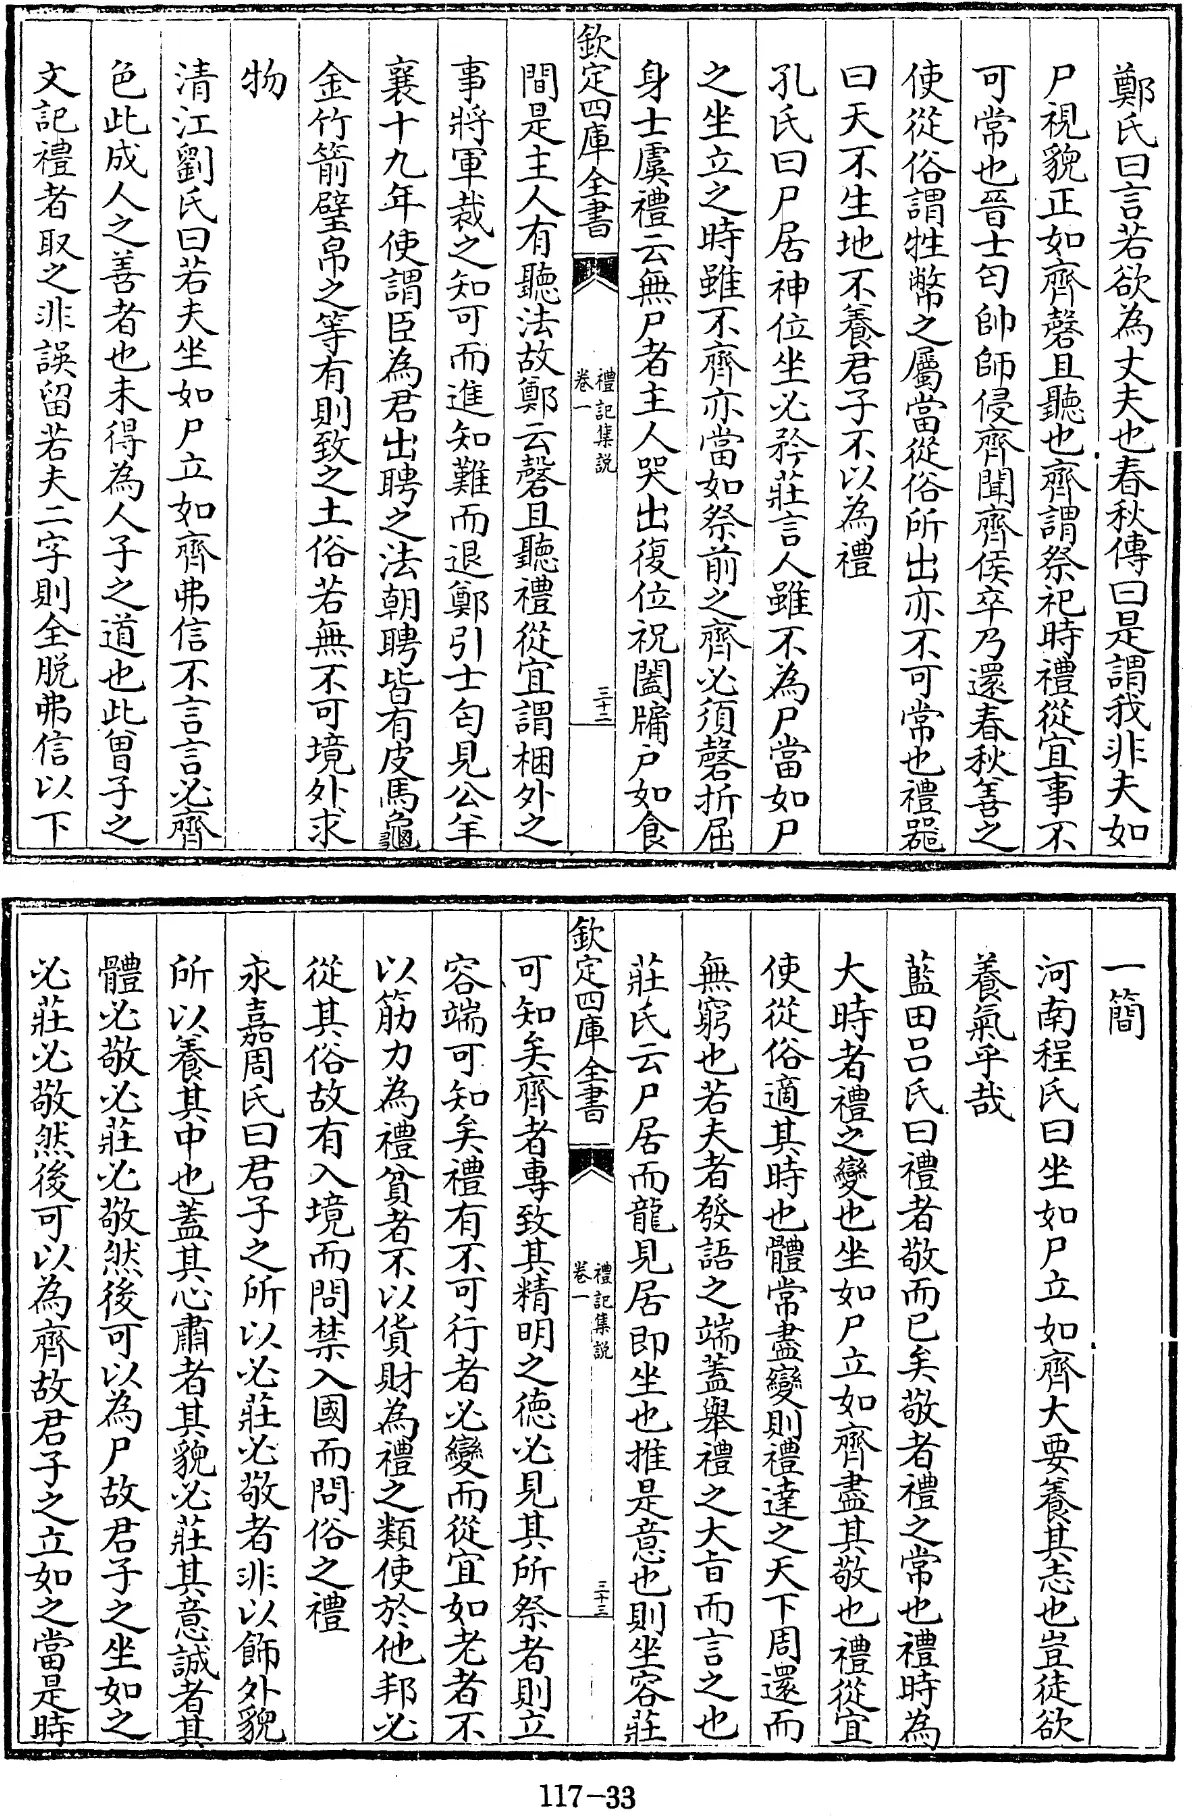 鄭氏曰言若欲為丈夫也春秋傳曰是謂我非夫如
尸視貌正如齊磬且聽也齊謂祭祀時禮從宜事不
可常也晉士匄帥師侵齊聞齊侯卒乃還春秋善之
使從俗謂牲幣之屬當從俗所出亦不可常也禮器
曰天不生地不養君子不以為禮
孔氏曰尸居神位坐必矜莊言人雖不為尸當如尸
之坐立之時雖不齊亦當如祭前之齊必須磬折屈
身士虞禮云無尸者主人哭出復位祝闔牖户如食
欽定四庫全書
禮記集説
卷一
三十二
間是主人有聽法故鄭云磬且聽禮從宜謂梱外之
事將軍裁之知可而進知難而退鄭引士匄見公羊
襄十九年使謂臣為君出聘之法朝聘皆有皮馬龜
金竹箭璧帛之等有則致之土俗若無不可境外求
物
清江劉氏曰若夫坐如尸立如齊弗信不言言必齊
色此成人之善者也未得為人子之道也此曾子之
文記禮者取之非誤留若夫二字則全脱弗信以下
一簡
河南程氏曰坐如尸立如齊大要養其志也豈徒欲
養氣乎哉
藍田吕氏曰禮者敬而已矣敬者禮之常也禮時為
大時者禮之變也坐如尸立如齊盡其敬也禮從宜
使從俗適其時也體常盡變則禮達之天下周還而
無窮也若夫者發語之端蓋舉禮之大旨而言之也
莊氏云尸居而龍見居即坐也推是意也則坐容莊
欽定四庫全書
禮記集説
卷一
三十三
可知矣齊者專致其精明之德必見其所祭者則立
容端可知矣禮有不可行者必變而從宜如老者不
以筋力為禮貧者不以貨財為禮之類使於他邦必
從其俗故有入境而問禁入國而問俗之禮
永嘉周氏曰君子之所以必莊必敬者非以飾外貌
所以養其中也蓋其心肅者其貌必莊其意誠者其
體必敬必莊必敬然後可以為尸故君子之坐如之
必莊必敬然後可以為齊故君子之立如之當是時
117-33